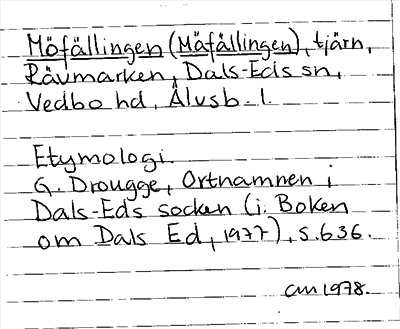 Möfällingen (Mäfällingen), tjärn,
Rävmarken, Dals-Eds sn,
Vedbo hd, Älvsb. l.
Etymologi.
G. Drougge, Ortnamnen i
Dals-Eds socken (i: Boken
om Dals Ed, 1977), s. 636.
am 1978.